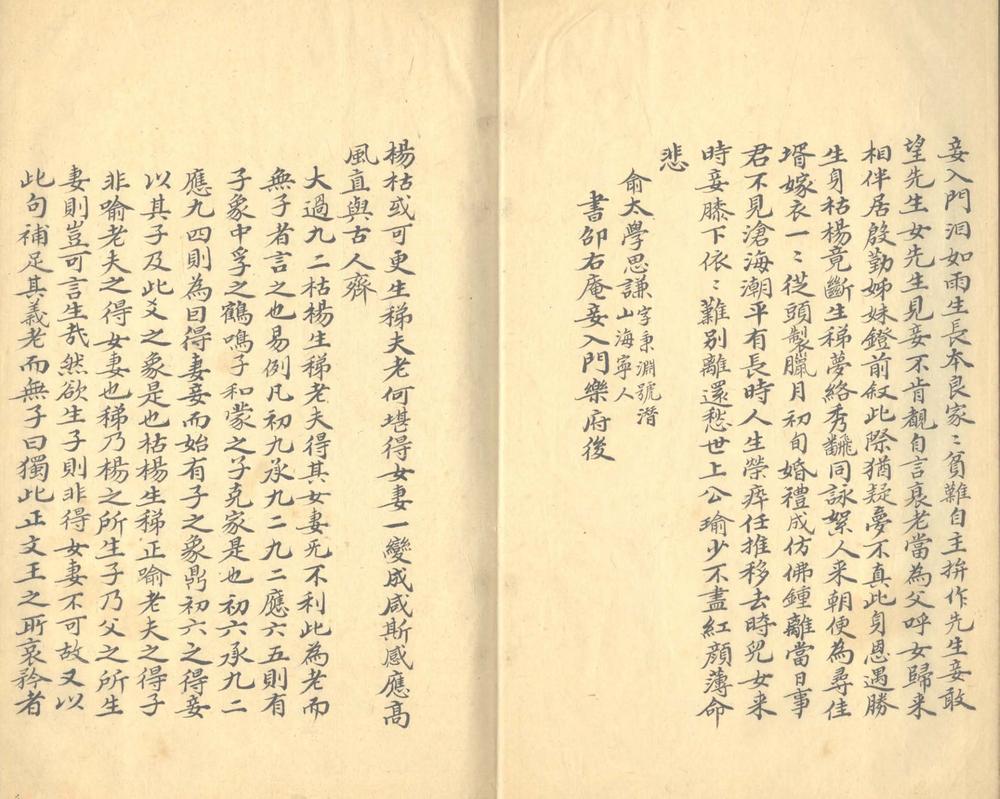 妾入門泪如雨生長本良家〻貧難自主拚作先生妾敢
望先生女先生見妾不肯覯自言衰老當為父呼女歸来
相伴居殷勤姊妹鐙前敘此際猶疑夢不真此身恩遇勝
生身枯楊竟斷生稊夢絡秀翻同詠絮人来朝便為尋佳
壻嫁衣一〻從頭製臘月初旬婚禮成仿佛鍾離當日事
君不見滄海潮平有長時人生榮瘁任推移去時兒女来
時妾膝下依〻難別離還愁世上公瑜少不盡紅顏薄命
悲
俞太學思謙字秉淵號潛
山海寧人
書邵右庵妾入門樂府後
楊枯或可更生稊夫老何堪得女妻一變成咸斯感應高
風直與古人齊
大過九二枯楊生稊老夫得其女妻无不利此為老而
無子者言之也易例凡初九承九二九二應六五則有
子象中孚之鶴鳴子和蒙之子克家是也初六承九二
應九四則為曰得妻妾而始有子之象鼎初六之得妾
以其子及此爻之象是也枯楊生稊正喻老夫之得子
非喻老夫之得女妻也稊乃楊之所生子乃父之所生
妻則豈可言生哉然欲生子則非得女妻不可故又以
此句補足其義老而無子曰獨此正文王之所哀矜者